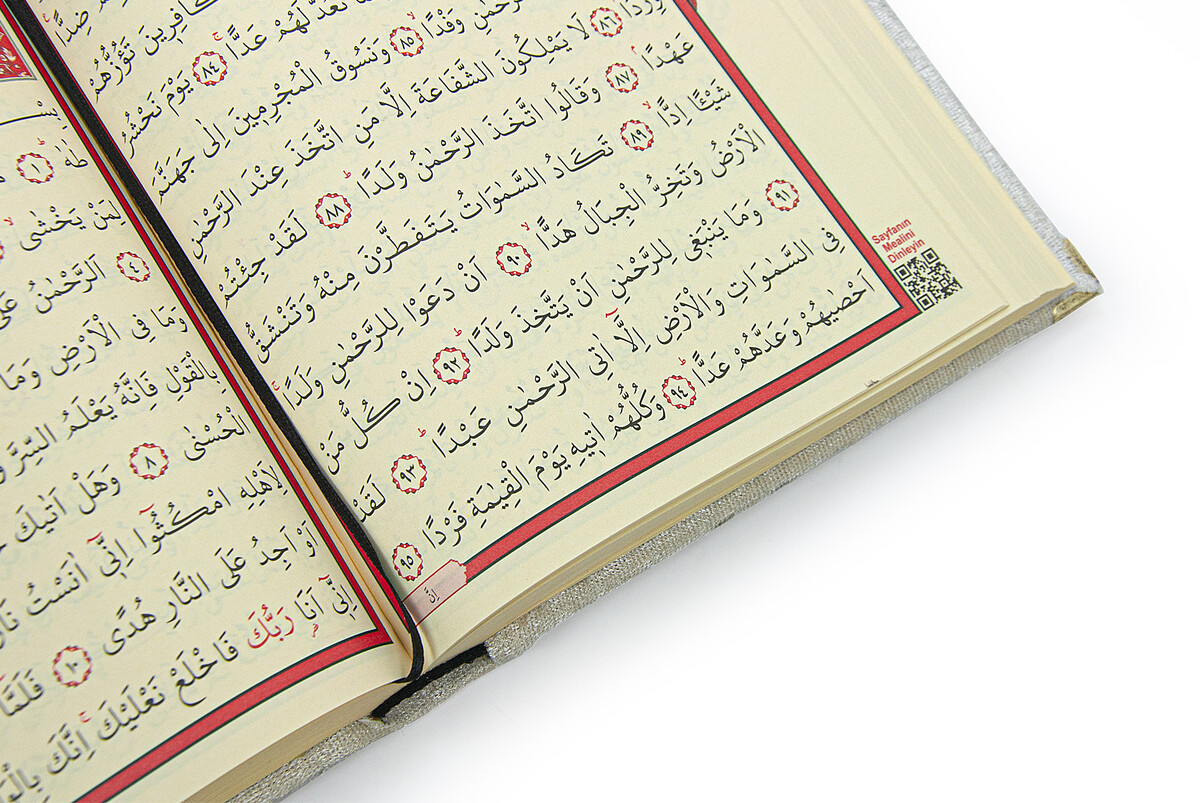 ضِدًّا
كَافِرِينَ تَؤُزُّهُمْ
نَعُدُّ لَهُمْ عَدًّا ﴿٨٤﴾ يَوْمَ نَحْشُرُ
وَفْدًا ﴿٨٥﴾ وَنَسُوقُ الْمُجْرِمِينَ اِلٰى جَهَنَّمَ
وِرْدًا ﴿٨٦﴾ لَا يَمْلِكُونَ الشَّفَاعَةَ اِلَّا مَنِ اتَّخَذَ عِنْدَ الرَّحْمٰنِ
عَهْدًا ﴿٨٧﴾ وَقَالُوا اتَّخَذَ الرَّحْمٰنُ وَلَدًا ﴿٨٨﴾ لَقَدْ جِئْتُمْ
شَيْئًا اِدًّا ﴿٨٩﴾ تَكَادُ السَّمٰوَاتُ يَتَفَطَّرْنَ مِنْهُ وَتَنْشَقُّ
الْاَرْضُ وَتَخِرُّ الْجِبَالُ هَدًّا ﴿٩٠﴾ اَنْ دَعَوْا لِلرَّحْمٰنِ وَلَدًا
﴿٩١﴾ وَمَا يَنْبَغِى لِلرَّحْمٰنِ اَنْ يَتَّخِذَ وَلَدًا ﴿٩٢﴾ اِنْ كُلُّ مَنْ
فِى السَّمٰوَاتِ وَالْاَرْضِ اِلَّٓا اٰتِى الرَّحْمٰنِ عَبْدًا ﴿٩٣﴾ لَقَدْ
اَحْصٰيهُمْ وَعَدَّهُمْ عَدًّا ﴿٩٤﴾ وَكُلُّهُمْ اٰتِيهِ يَوْمَ الْقِيٰمَةِ فَرْدًا ﴿٩٥﴾
اِنَّ
Sayfanın
Mealini
Dinleyin
طٰهٰ ﴿١﴾
لِمَنْ يَخْشٰى
﴿٤﴾ اَلرَّحْمٰنُ
وَمَا فِى الْاَرْضِ وَمَا
بِالْقَوْلِ فَاِنَّهُ يَعْلَمُ السِّرَّ
الْحُسْنٰى ﴿٨﴾ وَهَلْ اَتٰيكَ
لِاَهْلِهِ امْكُثُٓوا اِنِّٓى اٰنَسْتُ
اَوْ اَجِدُ عَلَى النَّارِ هُدًى ﴿١٠﴾ فَلَمَّٓا
اِنِّٓى اَنَا رَبُّكَ فَاخْلَعْ نَعْلَيْكَ اِنَّكَ